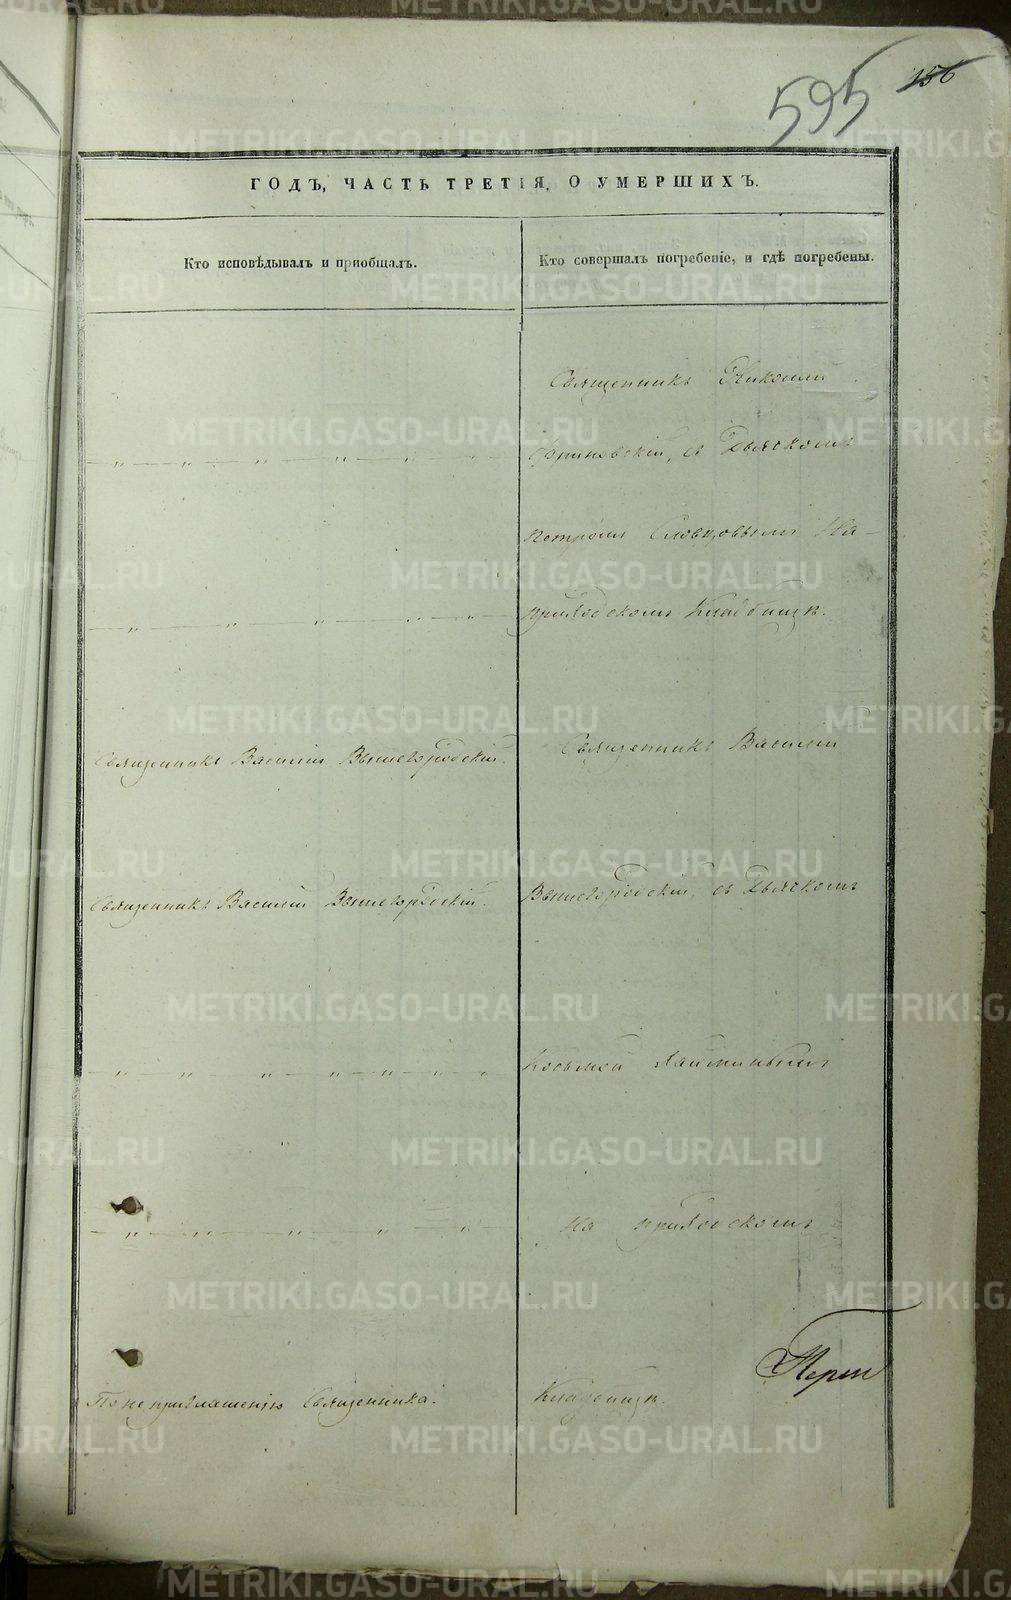 595 156
ГОДЪ, ЧАСТЬ ТРЕТІЯ, О УМЕРШИХЪ.
Кто исповѣдывалъ и пріобщалъ.
Кто совершалъ погребеніе, и гдѣ погребены.
Священникъ Николай
съ Дьячкомъ
Петромъ Словцовымъ На
приходскомъ Кладбищѣ.
Священникъ Василій Вышегородскій.
Священникъ Василій
Священникъ Василій Вышегородскій.
Вышегородскій, съ Дьячкомъ
Козьмой
на приходскомъ
По не приглашенію Священника.
Кладбищѣ.
METRIKI.GASO-URAL.RU